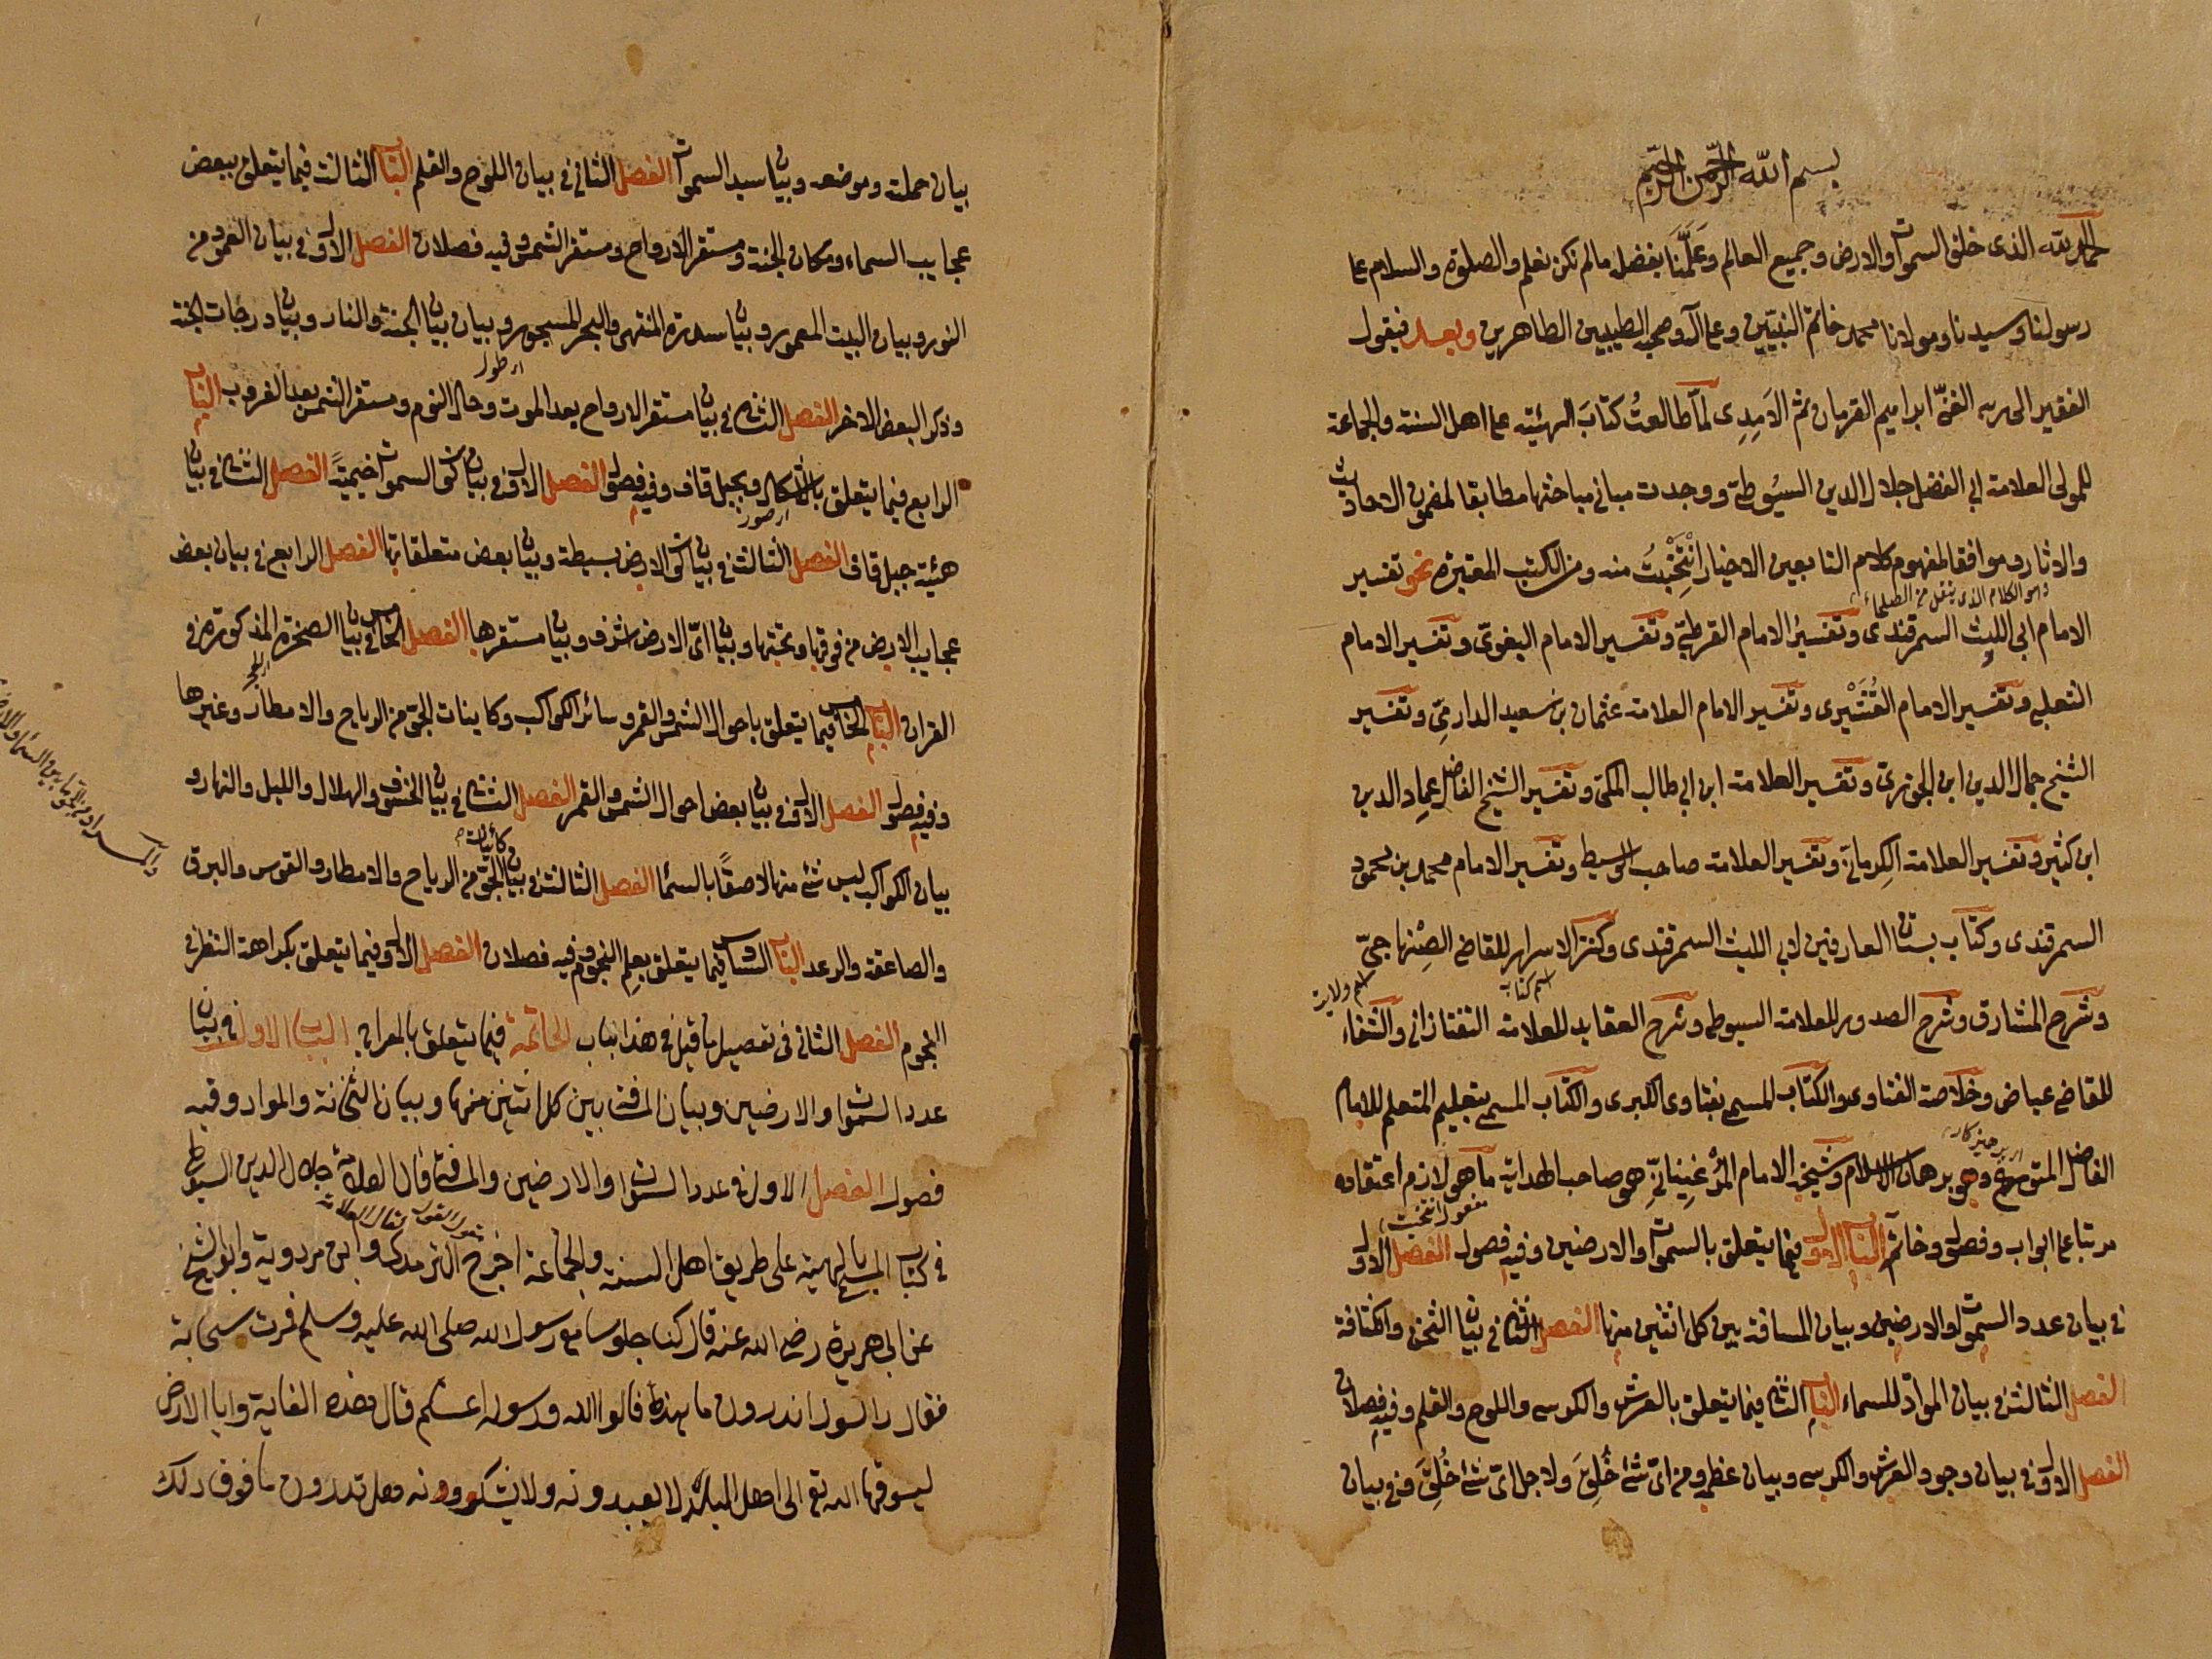 بسم الله الرحمن الرحيم
الحمد لله الذى خلق السموات والارض وجميع العالم وعَلَّمَنَا بفضله مالم نكن نعلم والصلوة والسلام على
رسولنا وسيدنا ومولانا محمد خاتم النبيّين وعلى آله وصحبه الطيبين الطاهرين وبعد فيقول
الفقير الى ربه الغنىّ ابراهيم القرمانى ثم الآمِدِى لمّا طالعتُ كتابَ الهيئية على اهل السنة والجماعة
للمولى العلامة ابى الفضل جلال الدين السيُوطى ووجدت مبانى مباحثها مطابقا لمضمون الاحاديث
والاثار وموافقا لمفهوم كلام التابعين الاخيار اِنْتَخَبْتُ منه ومن الكتب المعتبرة نحو تفسير
وهو الكلام الذى ينقل من الصلحاء
الامام ابى الليث السمرقندى وتفسيرُ الامام القرطبىّ وتفسير الامام البغوىّ وتفسير الامام
الثعلبى وتفسير الامام القُشَيْرى وتفسير الامام العلامة عثمان بن سعيد الدارمىّ وتفسير
الشيخ جمال الدين ابن الجوزىّ وتفسير العلامة ابن ابى طالب المكىّ وتفسير الشيخ الفاضل عماد الدين
ابن كثير وتفسير العلامة الكِرمانىّ وتفسير العلامة صاحب الوسيط وتفسير الامام محمد بن محمود
السمرقندى وكتاب بستان العارفين لابى الليث السمرقندى وكنز الاسرار للقاضى الصِنْهاجىّ
اسم كتاب
اسم ولاية
وشرح المشارق وشرح الصدور للعلامة السيوطى وشرح العقايد للعلامة التفتازانى والشفاء
للقاضى عياض وخلاصة الفتاوى والكتاب المسمى بفتاوى الكبرى والكتاب المسمى بتعليم المتعلم للامام
الفاضل المتورع وهو برهان الاسلام وشيخه الامام المَرْغِينانىّ هو صاحب الهداية ما هو لازم اعتقاده
مفعول انتخبت
مرتبا على ابواب وفصول وخاتمة الباب الاول فيما يتعلق بالسموات والارضين وفيه فصول الفصل الاول
فى بيان عدد السموات والارضين وبيان المسافة بين كل اثنين منها الفصل الثانى فى بيان الثخن واكثافة
الفصل الثالث فى بيان المواد للسماء الباب الثانى فيما يتعلق بالعرش والكرسى واللوح والقلم وفيه فصلان
الفصل الاول فى بيان وجود العرش والكرسى وبيان عظمه ومن اىّ شئ خُلِقَ ولاجل اىّ شئ خُلِقَ وفى بيان
بيان حملته وموضعه وبيان سيد السموات الفصل الثانى فى بيان اللوح والقلم الباب الثالث فيما يتعلق ببعض
عجايب السماء ومكان الجنة ومستقر الارواح ومستقر الشمس وفيه فصلان الفصل الاول فى بيان العمود من
النور وبيان البيت المعمور وبيان سدرة المنتهى والبحر المسجور وبيان بيان الجنة والنار وبيان درجات الجنة
وذكر البعض الاخر الفصل الثانى فى بيان مستقر الارواح بعد الموت وحال النوم ومستقر الشمس بعد الغروب الباب
الرابع فيما يتعلق بالاشكال وبجبل قاف وفيه فصول الفصل الاول فى بيان كون السموات خيميةً الفصل الثانى فى بيان
هيئية جبل قاف الفصل الثالث فى بيان كون الارض بسيطة وبيان بعض متعلقاتها الفصل الرابع فى بيان بعض
عجايب الارض من فوقها وتحتها وبيان اىّ الارض اشرف وبيان مستقرها الفصل الخامس فى بيان الصخرة المذكورة فى
القران الباب الخامس فيما يتعلق باحوال الشمس والقمر وسائر الكواكب وكاينات الجوّ من الرياح والامطار وغيرها
وفيه فصول الفصل الاول فى بيان بعض احوال الشمس والقمر الفصل الثانى فى بيان الخسوف والهلال والليل والنهار و
كائنات
بيان الكواكب ليس شئ منها لاصقًا بالسماء الفصل الثالث فى بيان الجوّ من الرياح والامطار والقوس والبرق
والصاعقة والرعد الباب السادس فيما يتعلق بعلم النجوم وفيه فصلان الفصل الاول فيما يتعلق بكراهة النظر فى
النجوم الفصل الثانى فى تفصيل ما قيل فى هذا الباب الخاتمة فيما يتعلق بالمعراج الباب الاول فى بيان
عدد السموات والارضين وبيان المسافة بين كل اثنين منها وبيان الثخانة والمواد وفيه
فصول الفصل الاول فى عدد السموات والارضين والمسافة قال العلامة جلال الدين السيوطى
فى كتاب المسمى بالهيئية على طريق اهل السنة والجماعة اخرج الترمذى وابن مردوية وابو الشيخ
عن ابى هريرة رضى الله عنه قال كنا جلوسا مع رسول الله صلى الله عليه وسلم فمرت سحابة
فقال رسول اتدرون ما هذه قالوا الله ورسوله اعلم قال هذه الغاية وايا الارض
ليسوقها الله تع الى اهل البلد لا يعبدونه ولا يشكرونه هل تدرون ما فوق ذلك